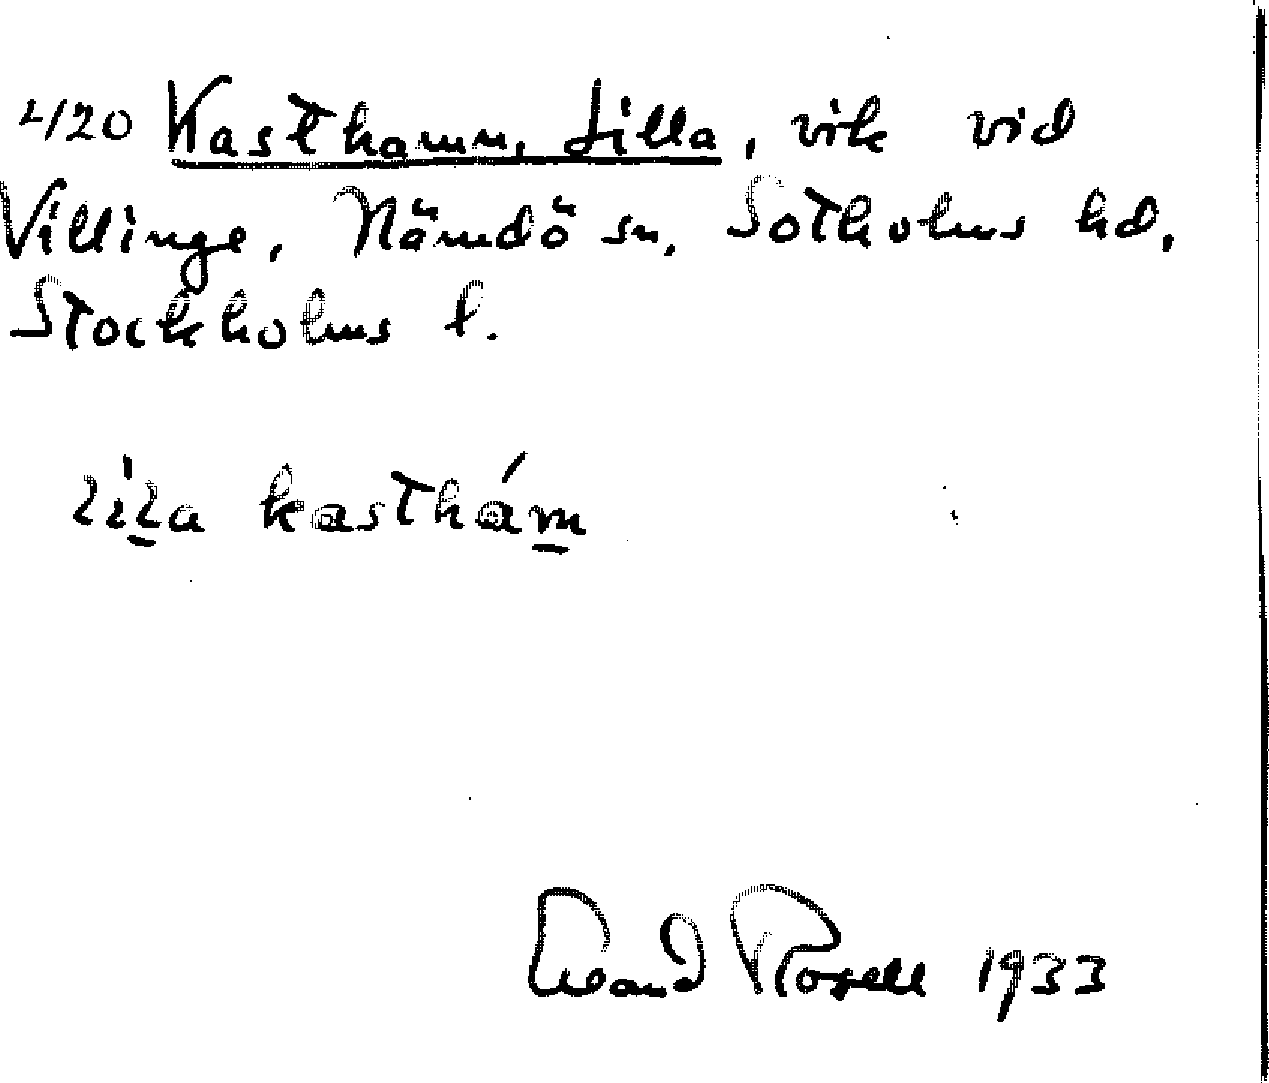 4/20 Kasthamn, Lilla, vik vid
Villinge, Nämdö sn, Sotholms hd,
Stockholms l.
lila kasthám
Evard Rosell 1933